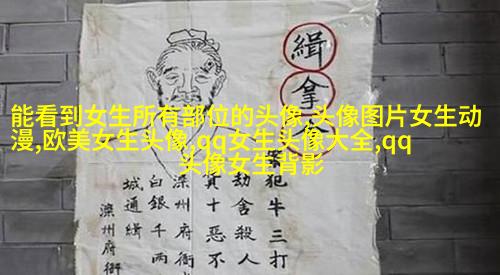 能看到女生所有部位的头像,头像图片女生动
漫,欧美女生头像,qq女生头像大全,qq
头像女生背影
緝拿
犯牛三打
劫舍殺人
真十惡不
滦州府衙
白銀千两
城通緝
滦州府衙